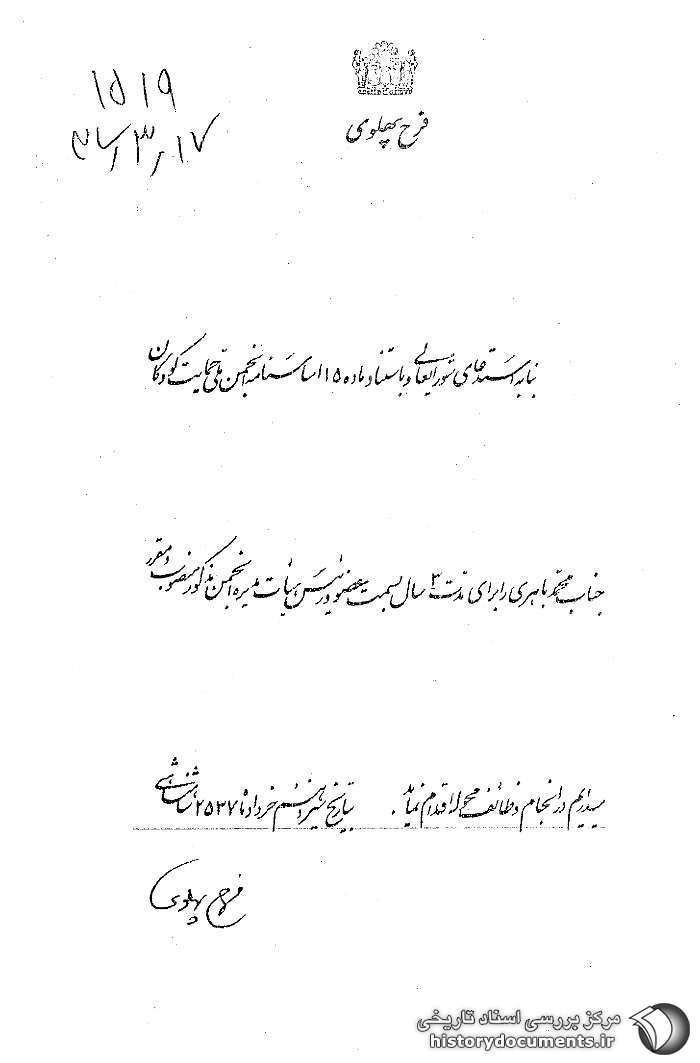 ۱۵۱۹
۳۷/۳/۱۷
فرح پهلوی
بنا به استدعای شورایعالی و باستناد ماده ۱۵ اساسنامه انجمن ملی حمایت کودکان
جناب محمد باهری را برای مدت ۳ سال بسمت عضو و رئیس هیأت مدیره انجمن مذکور منصوب و مقرر
میداریم در انجام وظائف محوله اقدام نماید. بتاریخ سیزدهم خرداد ماه ۲۵۳۷ شاهنشاهی
فرح پهلوی
مرکز بررسی اسناد تاریخی
historydocuments.ir